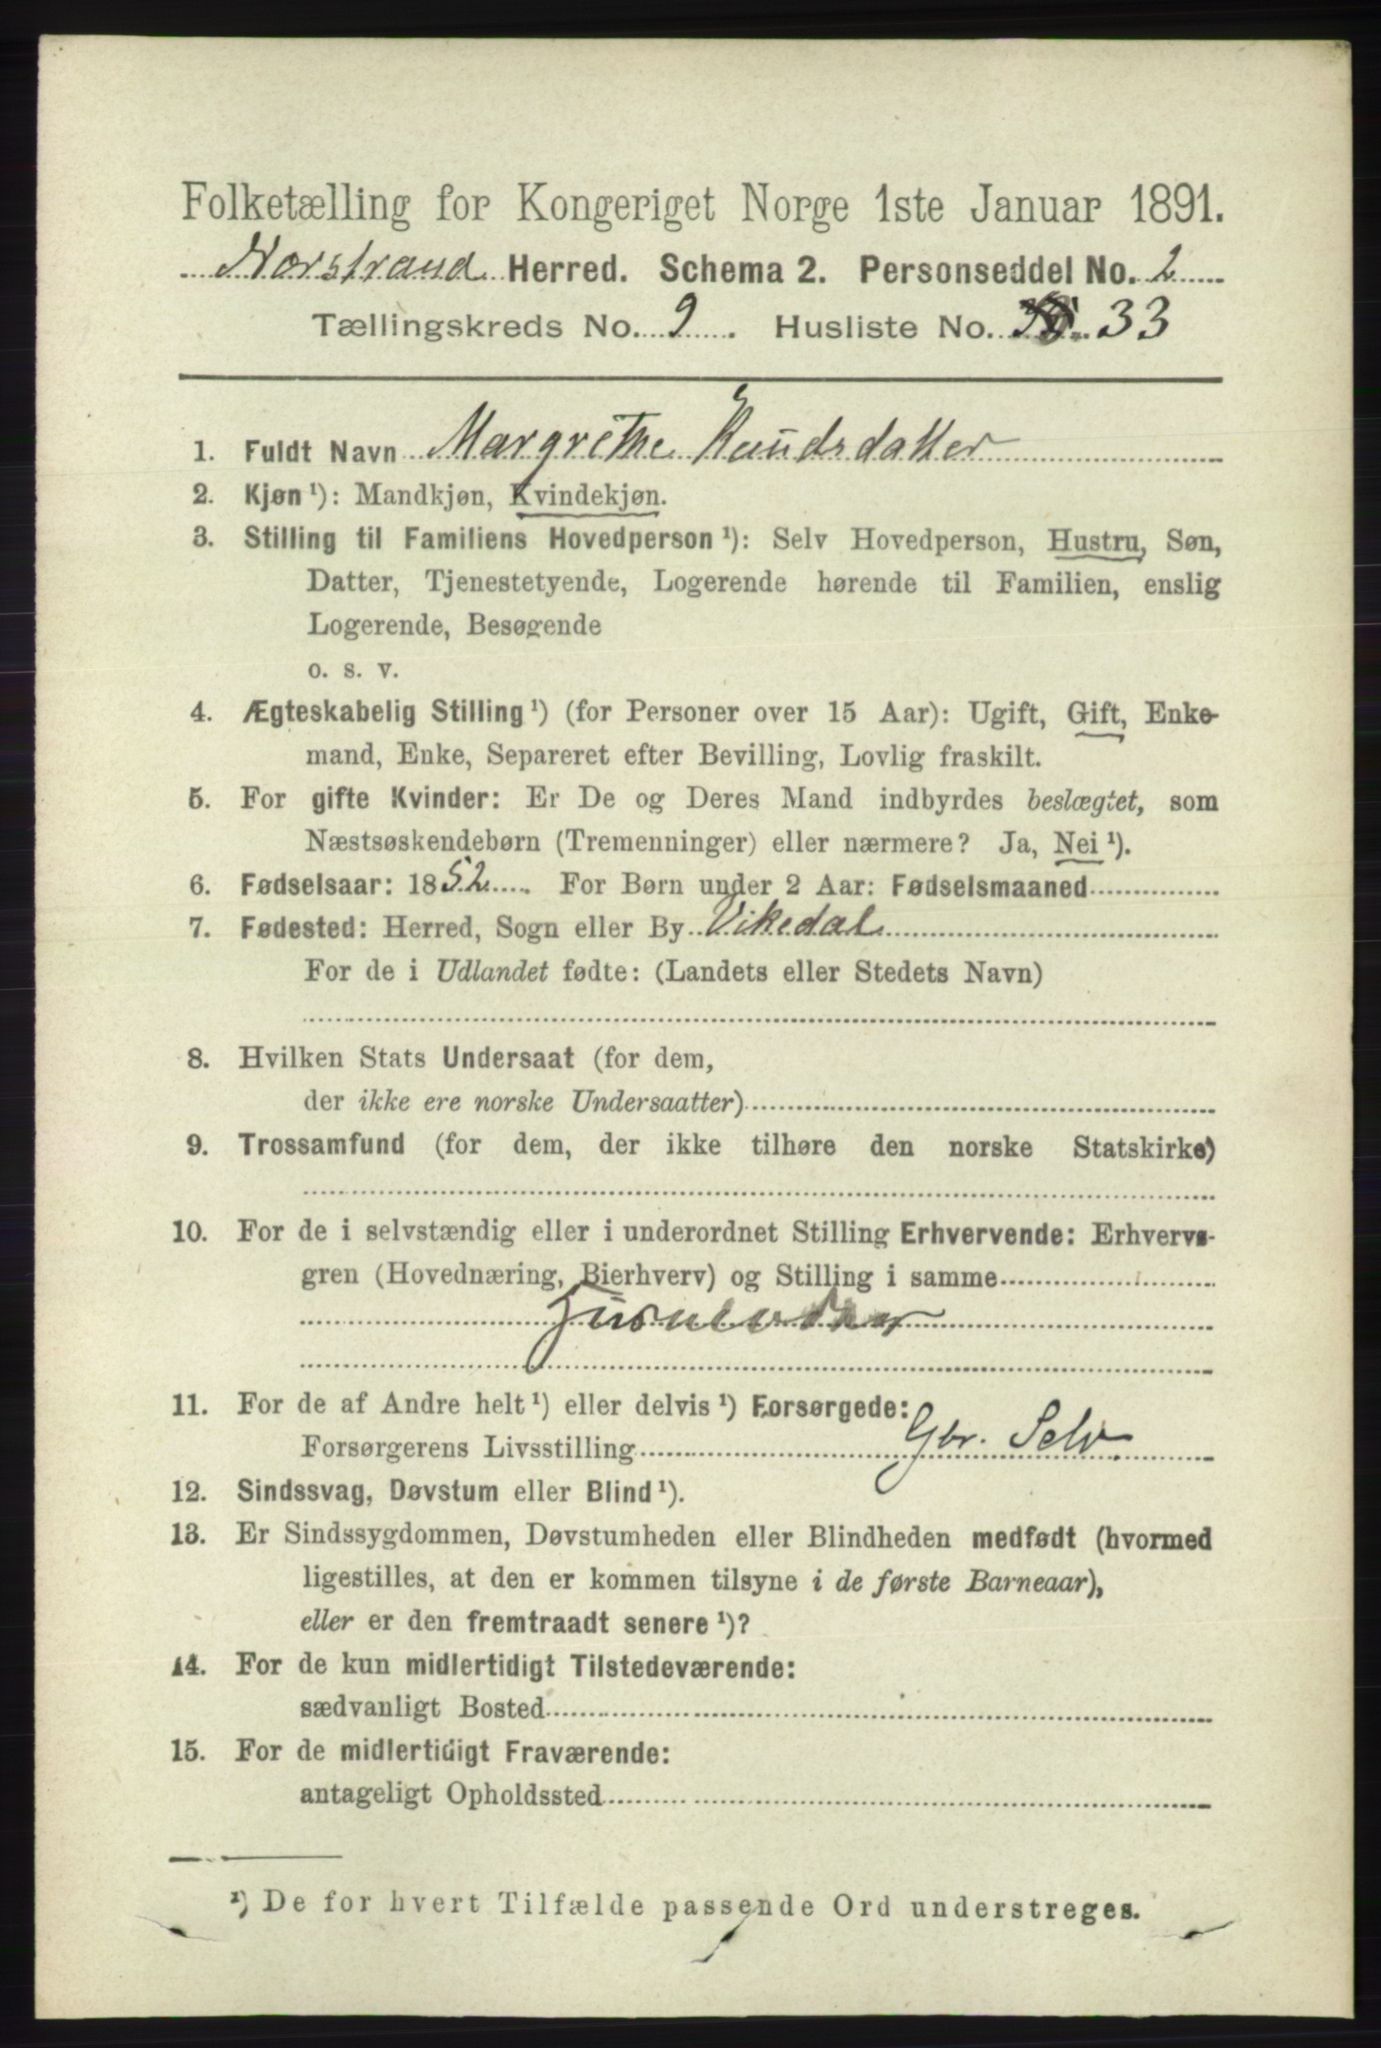 Folketælling for Kongeriget Norge 1ste Januar 1891.
Norstrand Herred. Schema 2. Personseddel No. 2
Tællingskreds No. 9. Husliste No. 33
1. Fuldt Navn Margrethe Knudsdatter
2. Kjøn ¹): Mandkjøn, Kvindekjøn.
3. Stilling til Familiens Hovedperson ¹): Selv Hovedperson, Hustru, Søn,
Datter, Tjenestetyende, Logerende hørende til Familien, enslig
Logerende, Besøgende
o. s. v.
4. Ægteskabelig Stilling ¹) (for Personer over 15 Aar): Ugift, Gift, Enke-
mand, Enke, Separeret efter Bevilling, Lovlig fraskilt.
5. For gifte Kvinder: Er De og Deres Mand indbyrdes beslægtet, som
Næstsøskendebørn (Tremenninger) eller nærmere? Ja, Nei ¹).
6. Fødselsaar: 1852. For Børn under 2 Aar: Fødselsmaaned
7. Fødested: Herred, Sogn eller By Vikedal
For de i Udlandet fødte: (Landets eller Stedets Navn)
8. Hvilken Stats Undersaat (for dem,
der ikke ere norske Undersaatter)
9. Trossamfund (for dem, der ikke tilhøre den norske Statskirke)
10. For de i selvstændig eller i underordnet Stilling Erhvervende: Erhvervs-
gren (Hovednæring, Bierhverv) og Stilling i samme
Husmoder
11. For de af Andre helt ¹) eller delvis ¹) Forsørgede:
Forsørgerens Livsstilling Gbr. Selv
12. Sindssvag, Døvstum eller Blind ¹).
13. Er Sindssygdommen, Døvstumheden eller Blindheden medfødt (hvormed
ligestilles, at den er kommen tilsyne i de første Barneaar),
eller er den fremtraadt senere ¹)?
14. For de kun midlertidigt Tilstedeværende:
sædvanligt Bosted
15. For de midlertidigt Fraværende:
antageligt Opholdssted
¹) De for hvert Tilfælde passende Ord understreges.